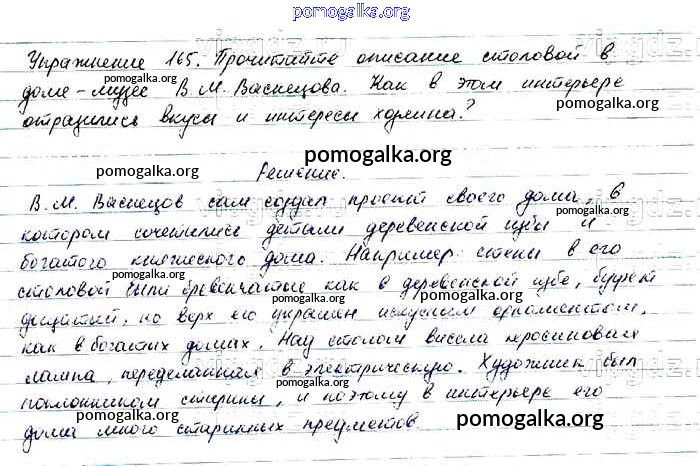 pomogalka.org
Упражнение 165. Прочитайте описание столовой в
pomogalka.org
доме-музее В.М. Васнецова. Как в этом интерьере
pomogalka.org
отразились вкусы и интересы хозяина?
pomogalka.org
Решение.
pomogalka.org
В.М. Васнецов сам создал проект своего дома, в
pomogalka.org
котором сочетались детали деревенской избы и
богатого княжеского дома. Например: стены в его
pomogalka.org
столовой были бревенчатые как в деревенской избе, буфет
pomogalka.org
дощатый, но верх его украшен искусным орнаментом,
как в богатых домах. Над столом висела керосиновая
pomogalka.org
лампа, переделанная в электрическую. Художник был
pomogalka.org
поклонником старины, и поэтому в интерьере его
pomogalka.org
дома много старинных предметов
pomogalka.org